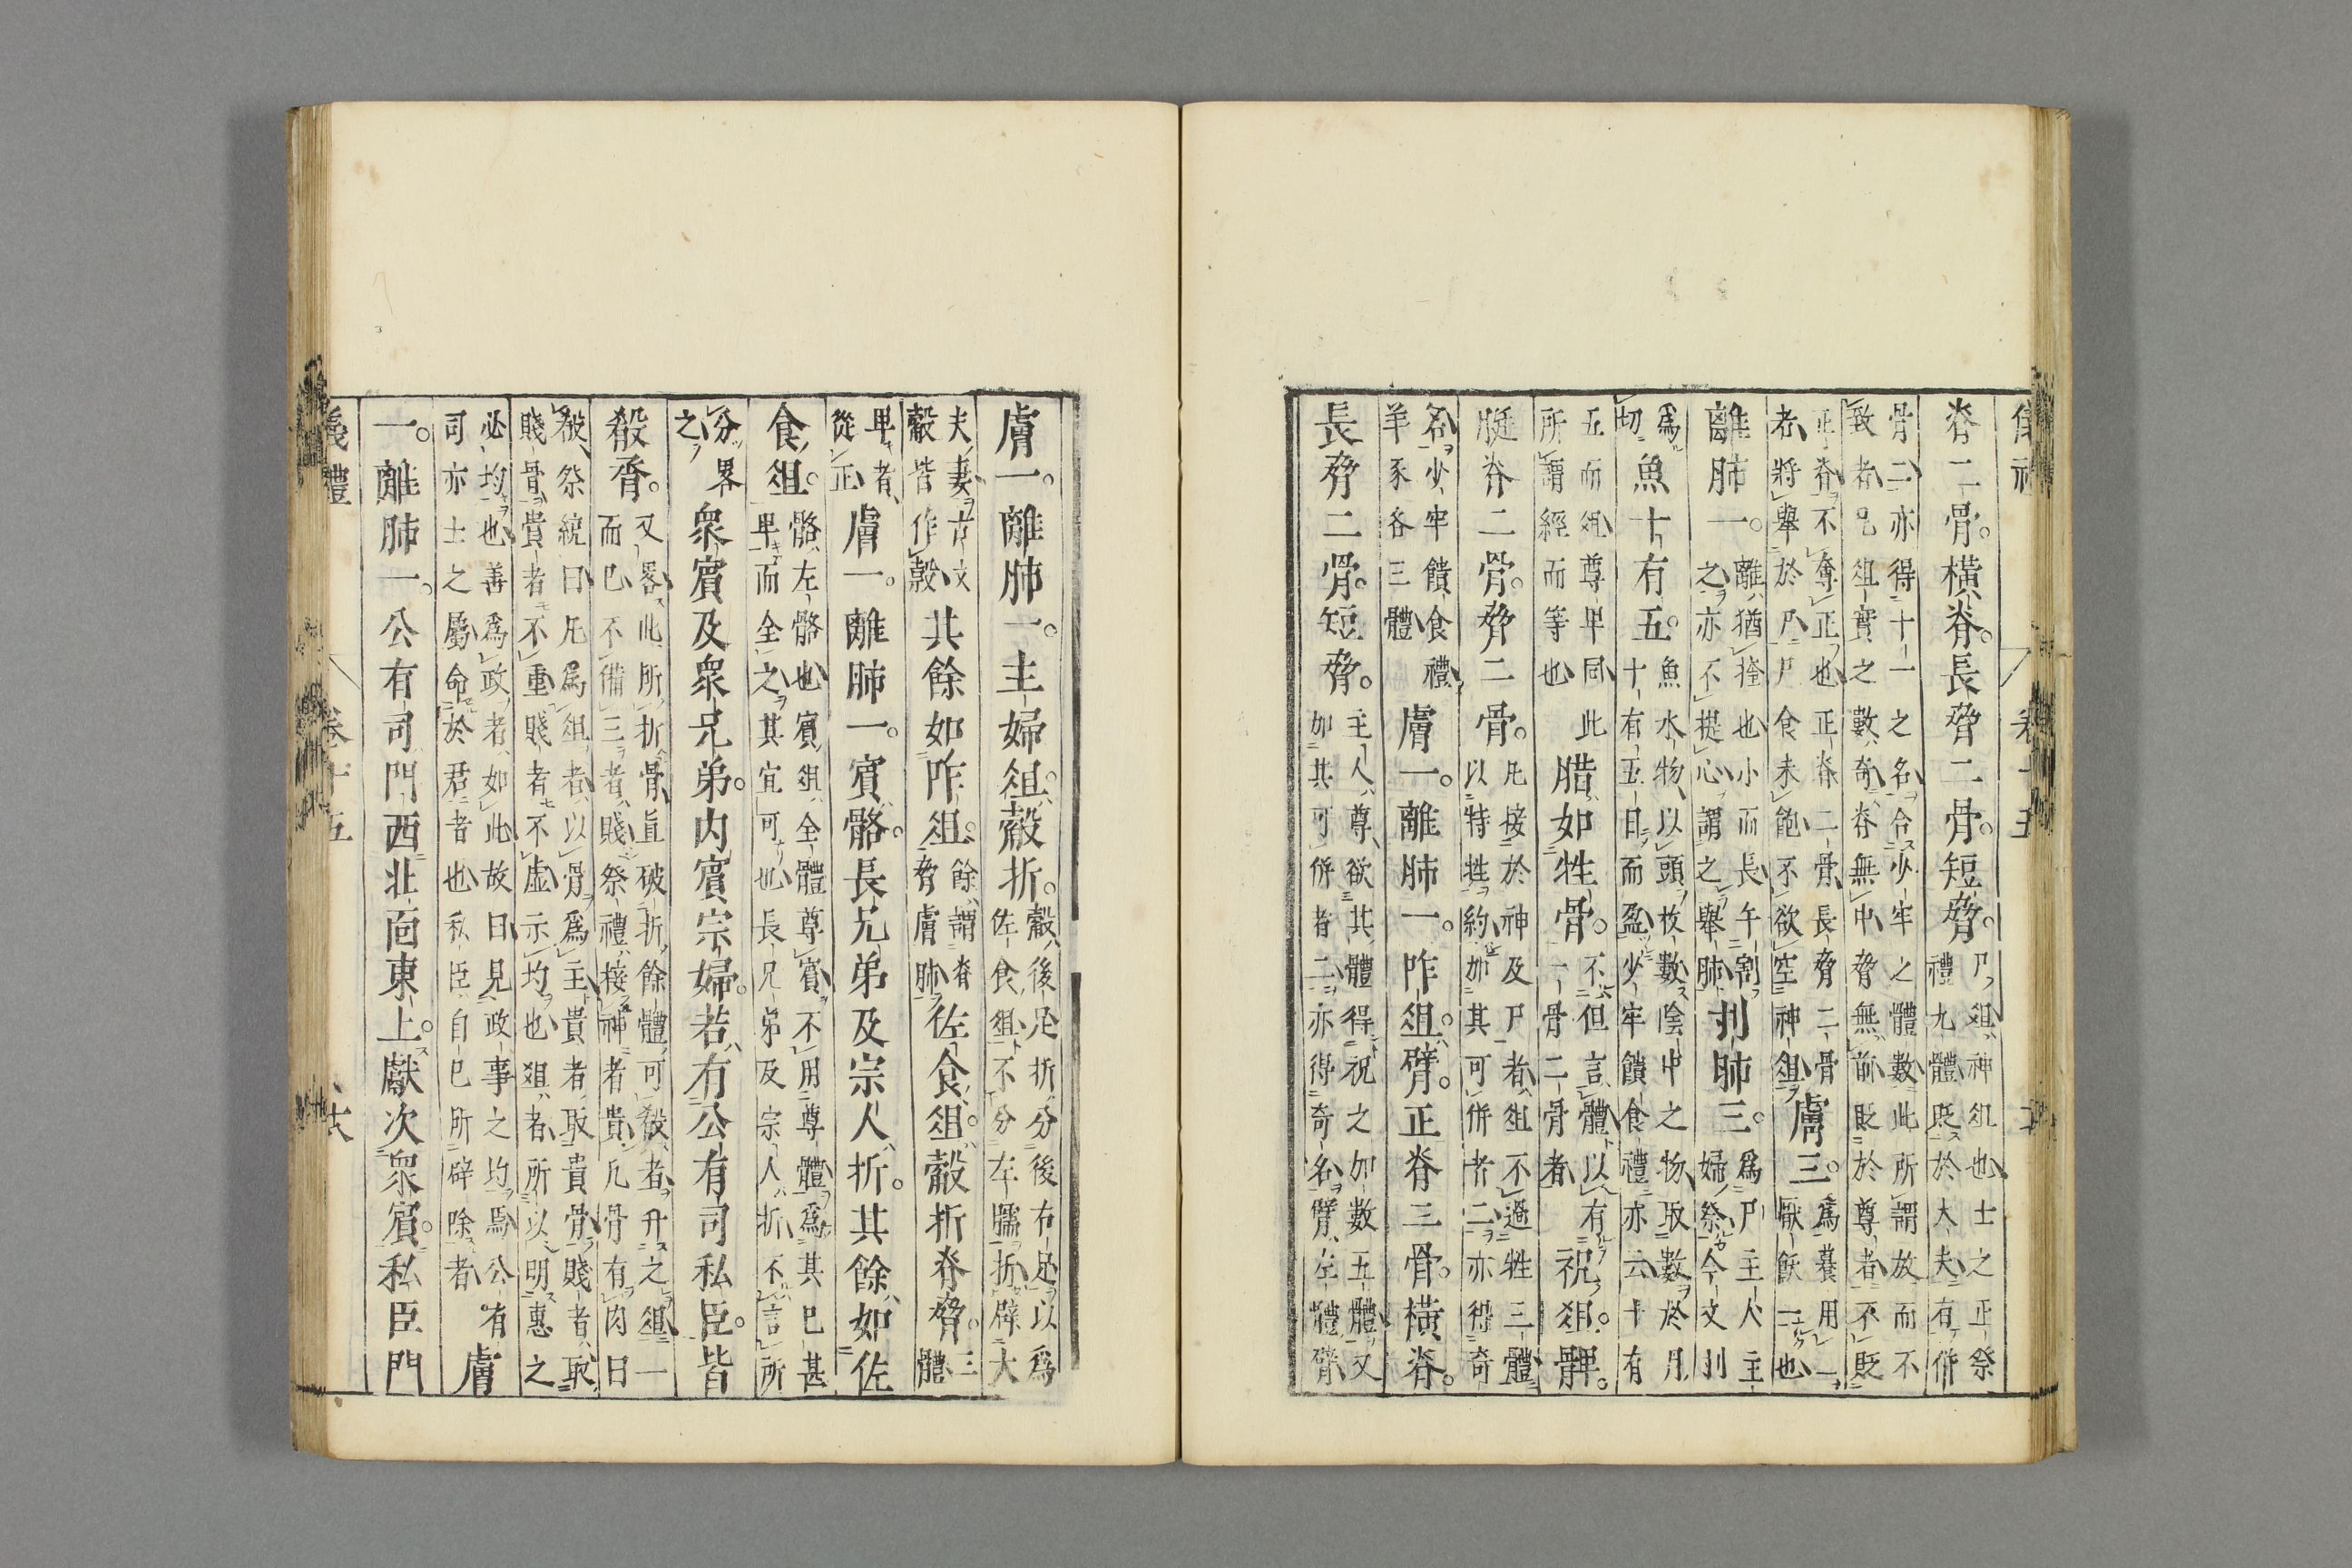 脊二骨。橫脊。長脅二骨。短脅。尸俎神俎也士之正祭
禮九體貶於大夫有併
骨二亦得十一之名合少牢之體數此所謂放而不
致者凡俎實之數奇脊無中脅無前貶於尊者不貶
正脊不奪正也正脊二骨長脅二骨
者將舉於尸尸食未飽不欲空神俎膚三。爲養用一
厭飫一也
離肺一。離猶挳也小而長午割
之亦不提心謂之舉肺刌肺三。爲尸主人主
婦祭今文刌
爲
切魚十有五。魚水物以頭枚數陰中之物取數於月
十有五日而盈少牢饋食禮亦云十有
五而俎尊卑同此
所謂經而等也腊如牲骨。不但言體以有
一骨二骨者祝俎。髀。
脡脊二骨。脅二骨。凡接於神及尸者俎不過牲三體
以特牲約加其可併者二亦得奇
名少牢饋食禮
羊豕各三體膚一。離肺一。阼俎。臂。正脊三骨。橫脊。
長脅二骨。短脅。主人尊欲其體得祝之加數五體又
加其可併者二亦得奇名臂左體臂
膚一。離肺一。主婦俎。觳折。觳後足折分後右足以爲
佐食俎不分左臑折辟大
夫妻古文
觳皆作㱿其餘如阼俎。餘謂脊
脅膚肺佐食俎。觳折脊脅。三
體
卑者
從正膚一。離肺一。賓骼。長兄弟及宗人折。其餘如佐
食俎。骼左骼也賓俎全體尊賓不用尊體爲其已甚
卑而全之其宜可也長兄弟及宗人折不言所
分畧
之衆賓及衆兄弟。内賓宗婦。若有公有司私臣。皆
殽脀。又畧此所折骨直破折餘體可殽者升之俎一
而已不備三者賤祭禮接神者貴凡骨有肉曰
殽祭統曰凡爲俎者以骨爲主貴者取貴骨賤者取
賤骨貴者不重賤者不虛示均也俎者所以明惠之
必均也善爲政者如此故曰見政事之均焉公有
司亦士之屬命於君者也私臣自己所辟除者膚
一。離肺一。公有司門西北面東上。獻次衆賓。私臣門
義禮 卷十五